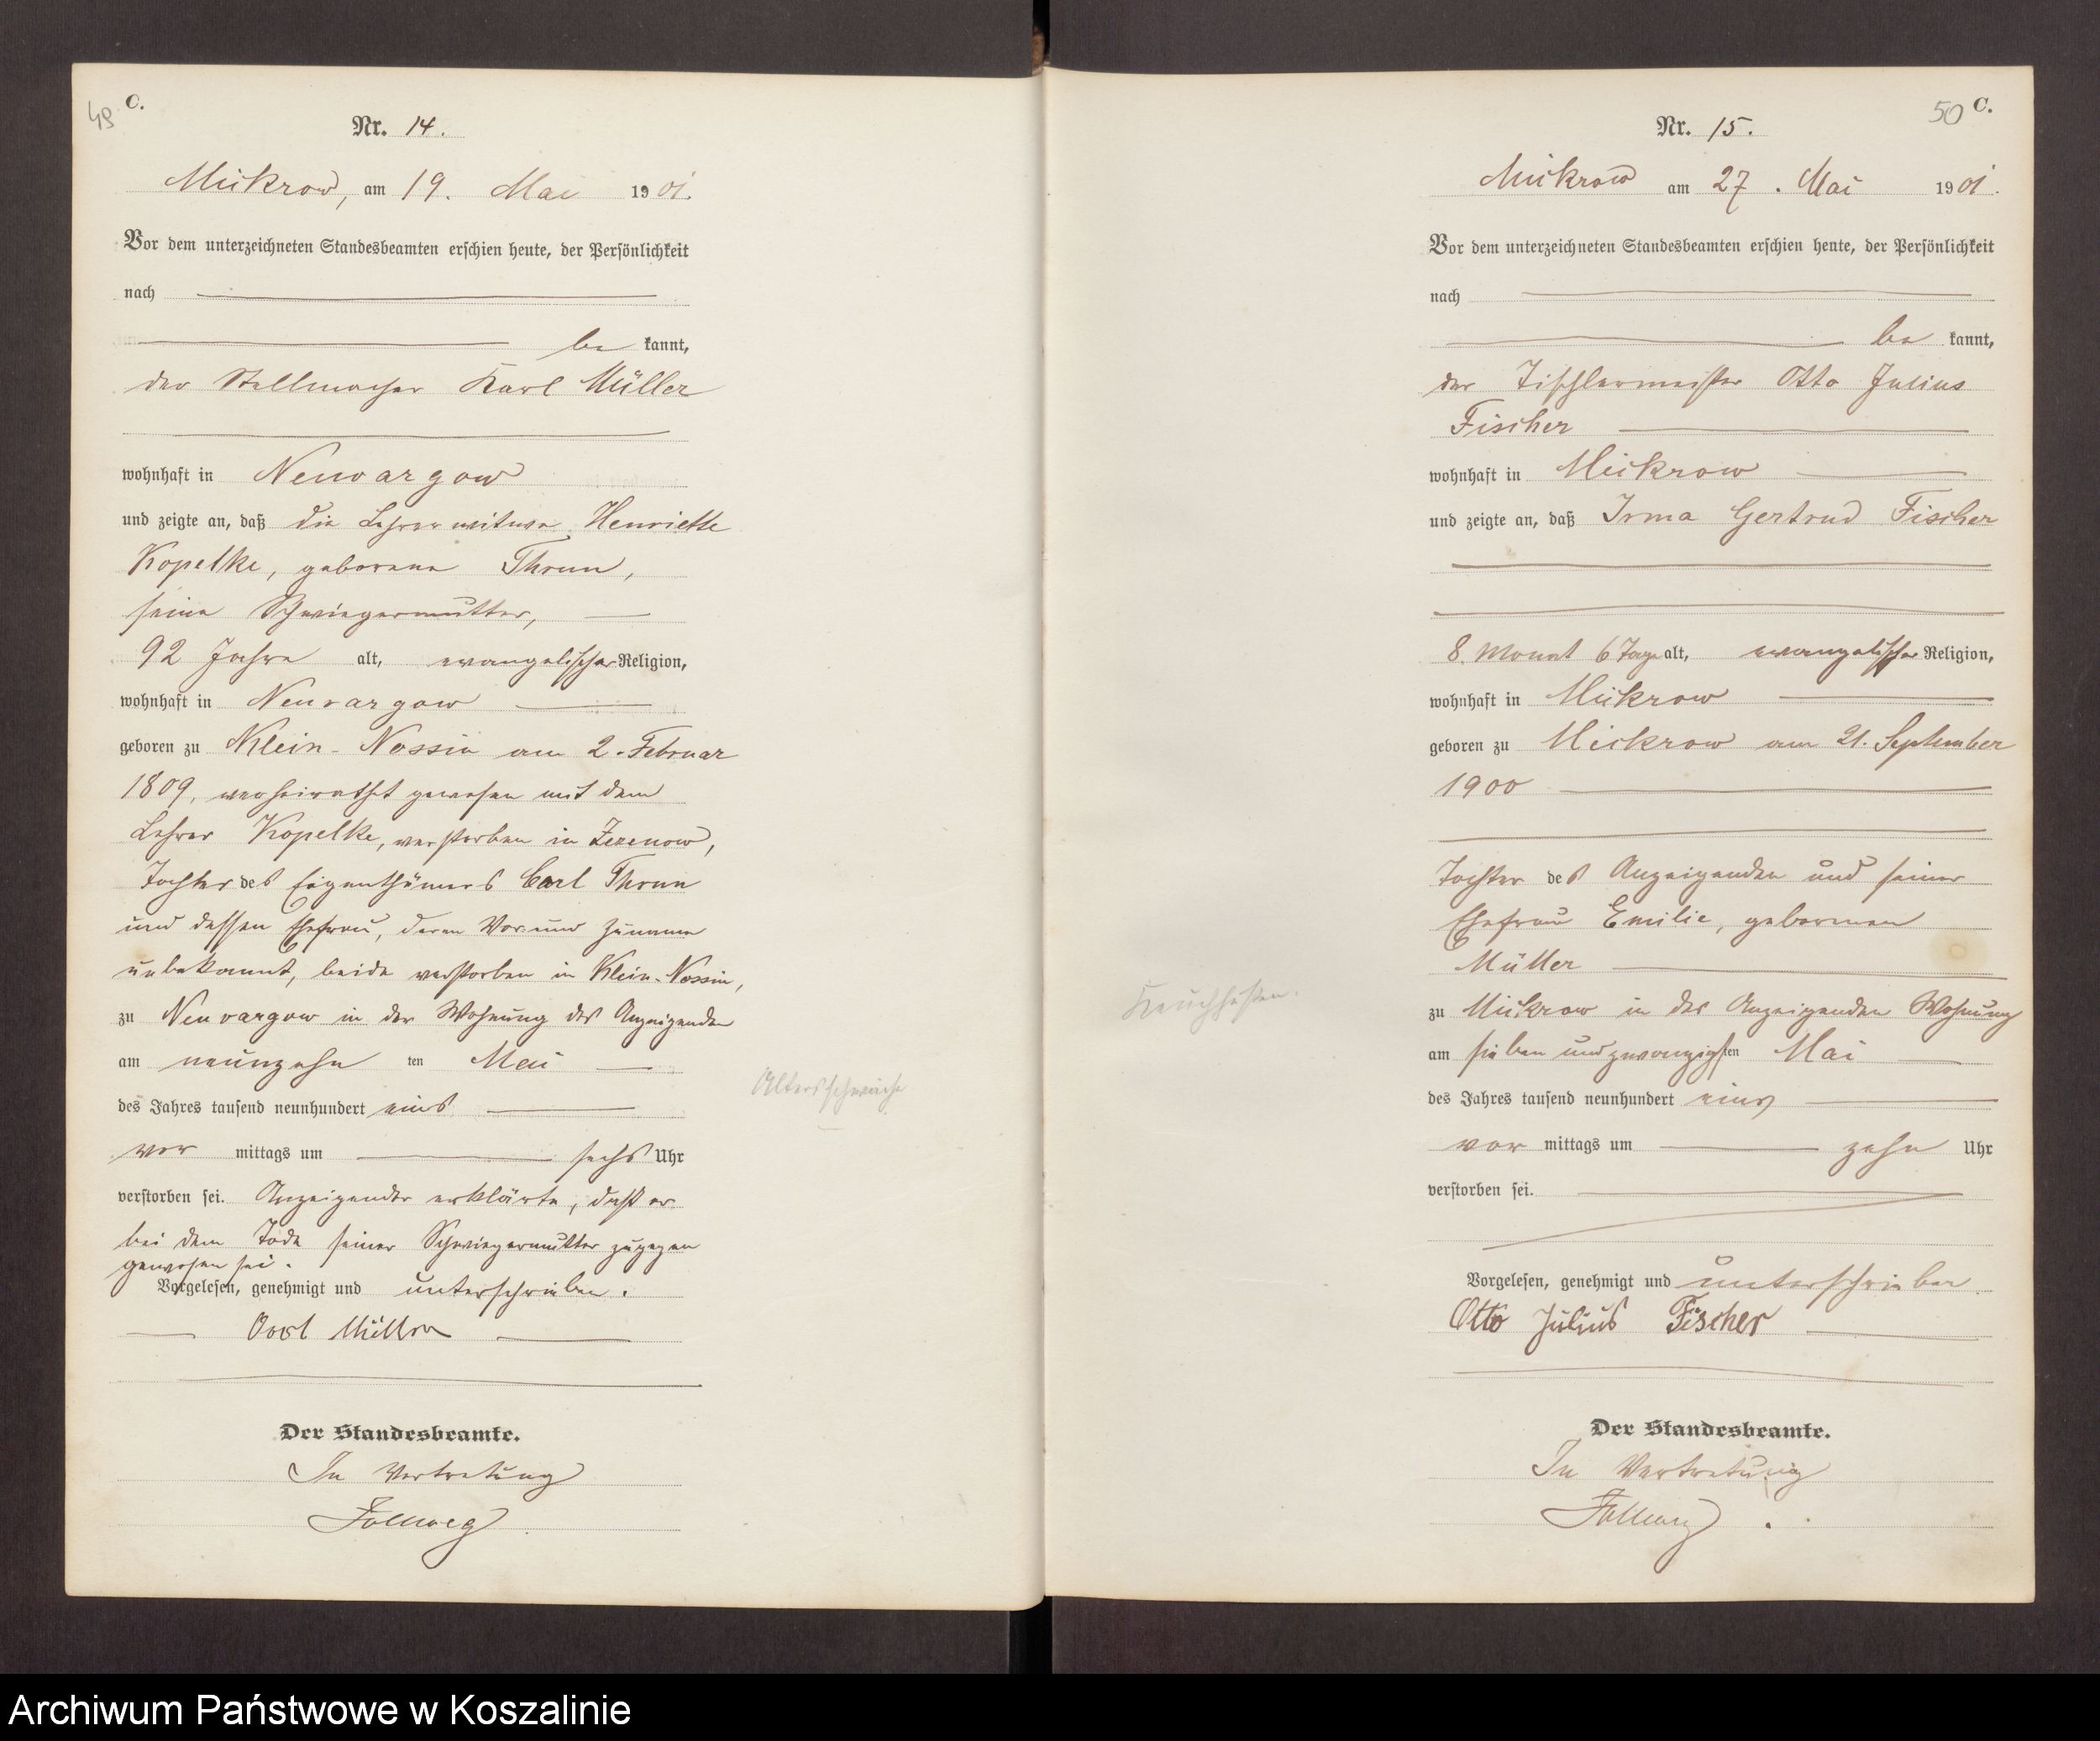 49 C.
Nr. 14.
Mickrow, am 19. Mai 1901.
Vor dem unterzeichneten Standesbeamten erschien heute, der Persönlichkeit
nach
be kannt,
der Stellmacher Karl Müller
wohnhaft in Neuvargow
und zeigte an, daß die Lehrerwitwe Henriette
Kopelke, geborene Thrun,
seine Schwiegermutter,
92 Jahre alt, evangelischer Religion,
wohnhaft in Neuvargow
geboren zu Klein-Nossin am 2. Februar
1809, verheirathet gewesen mit dem
Lehrer Kopelke, verstorben in Zezenow,
Tochter des Eigenthümers Carl Thrun
und dessen Ehefrau, deren Vor und Zuname
unbekannt, beide verstorben in Klein-Nossin,
zu Neuvargow in der Wohnung des Anzeigenden
am neunzehn ten Mai
des Jahres tausend neunhundert eins
vor mittags um sechs Uhr
verstorben sei. Anzeigender erklärte, daß er
bei dem Tode seiner Schwiegermutter zugegen
gewesen sei.
Vorgelesen, genehmigt und unterschrieben.
Carl Müller
Der Standesbeamte.
In Vertretung
Altersschwäche
50 C.
Nr. 15.
Mickrow am 27. Mai 1901.
Vor dem unterzeichneten Standesbeamten erschien heute, der Persönlichkeit
nach
be kannt,
der Tischlermeister Otto Julius
Fischer
wohnhaft in Mickrow
und zeigte an, daß Irma Gertrud Fischer
8. Monat 6 Tage alt, evangelischer Religion,
wohnhaft in Mickrow
geboren zu Mickrow am 21. September
1900
Tochter des Anzeigenden und seiner
Ehefrau Emilie, geborenen
Müller
zu Mickrow in des Anzeigenden Wohnung
am sieben und zwanzigsten Mai
des Jahres tausend neunhundert eins
vor mittags um zehn Uhr
verstorben sei.
Vorgelesen, genehmigt und unterschrieben
Otto Julius Fischer
Der Standesbeamte.
In Vertretung
Keuchhusten.
Archiwum Państwowe w Koszalinie